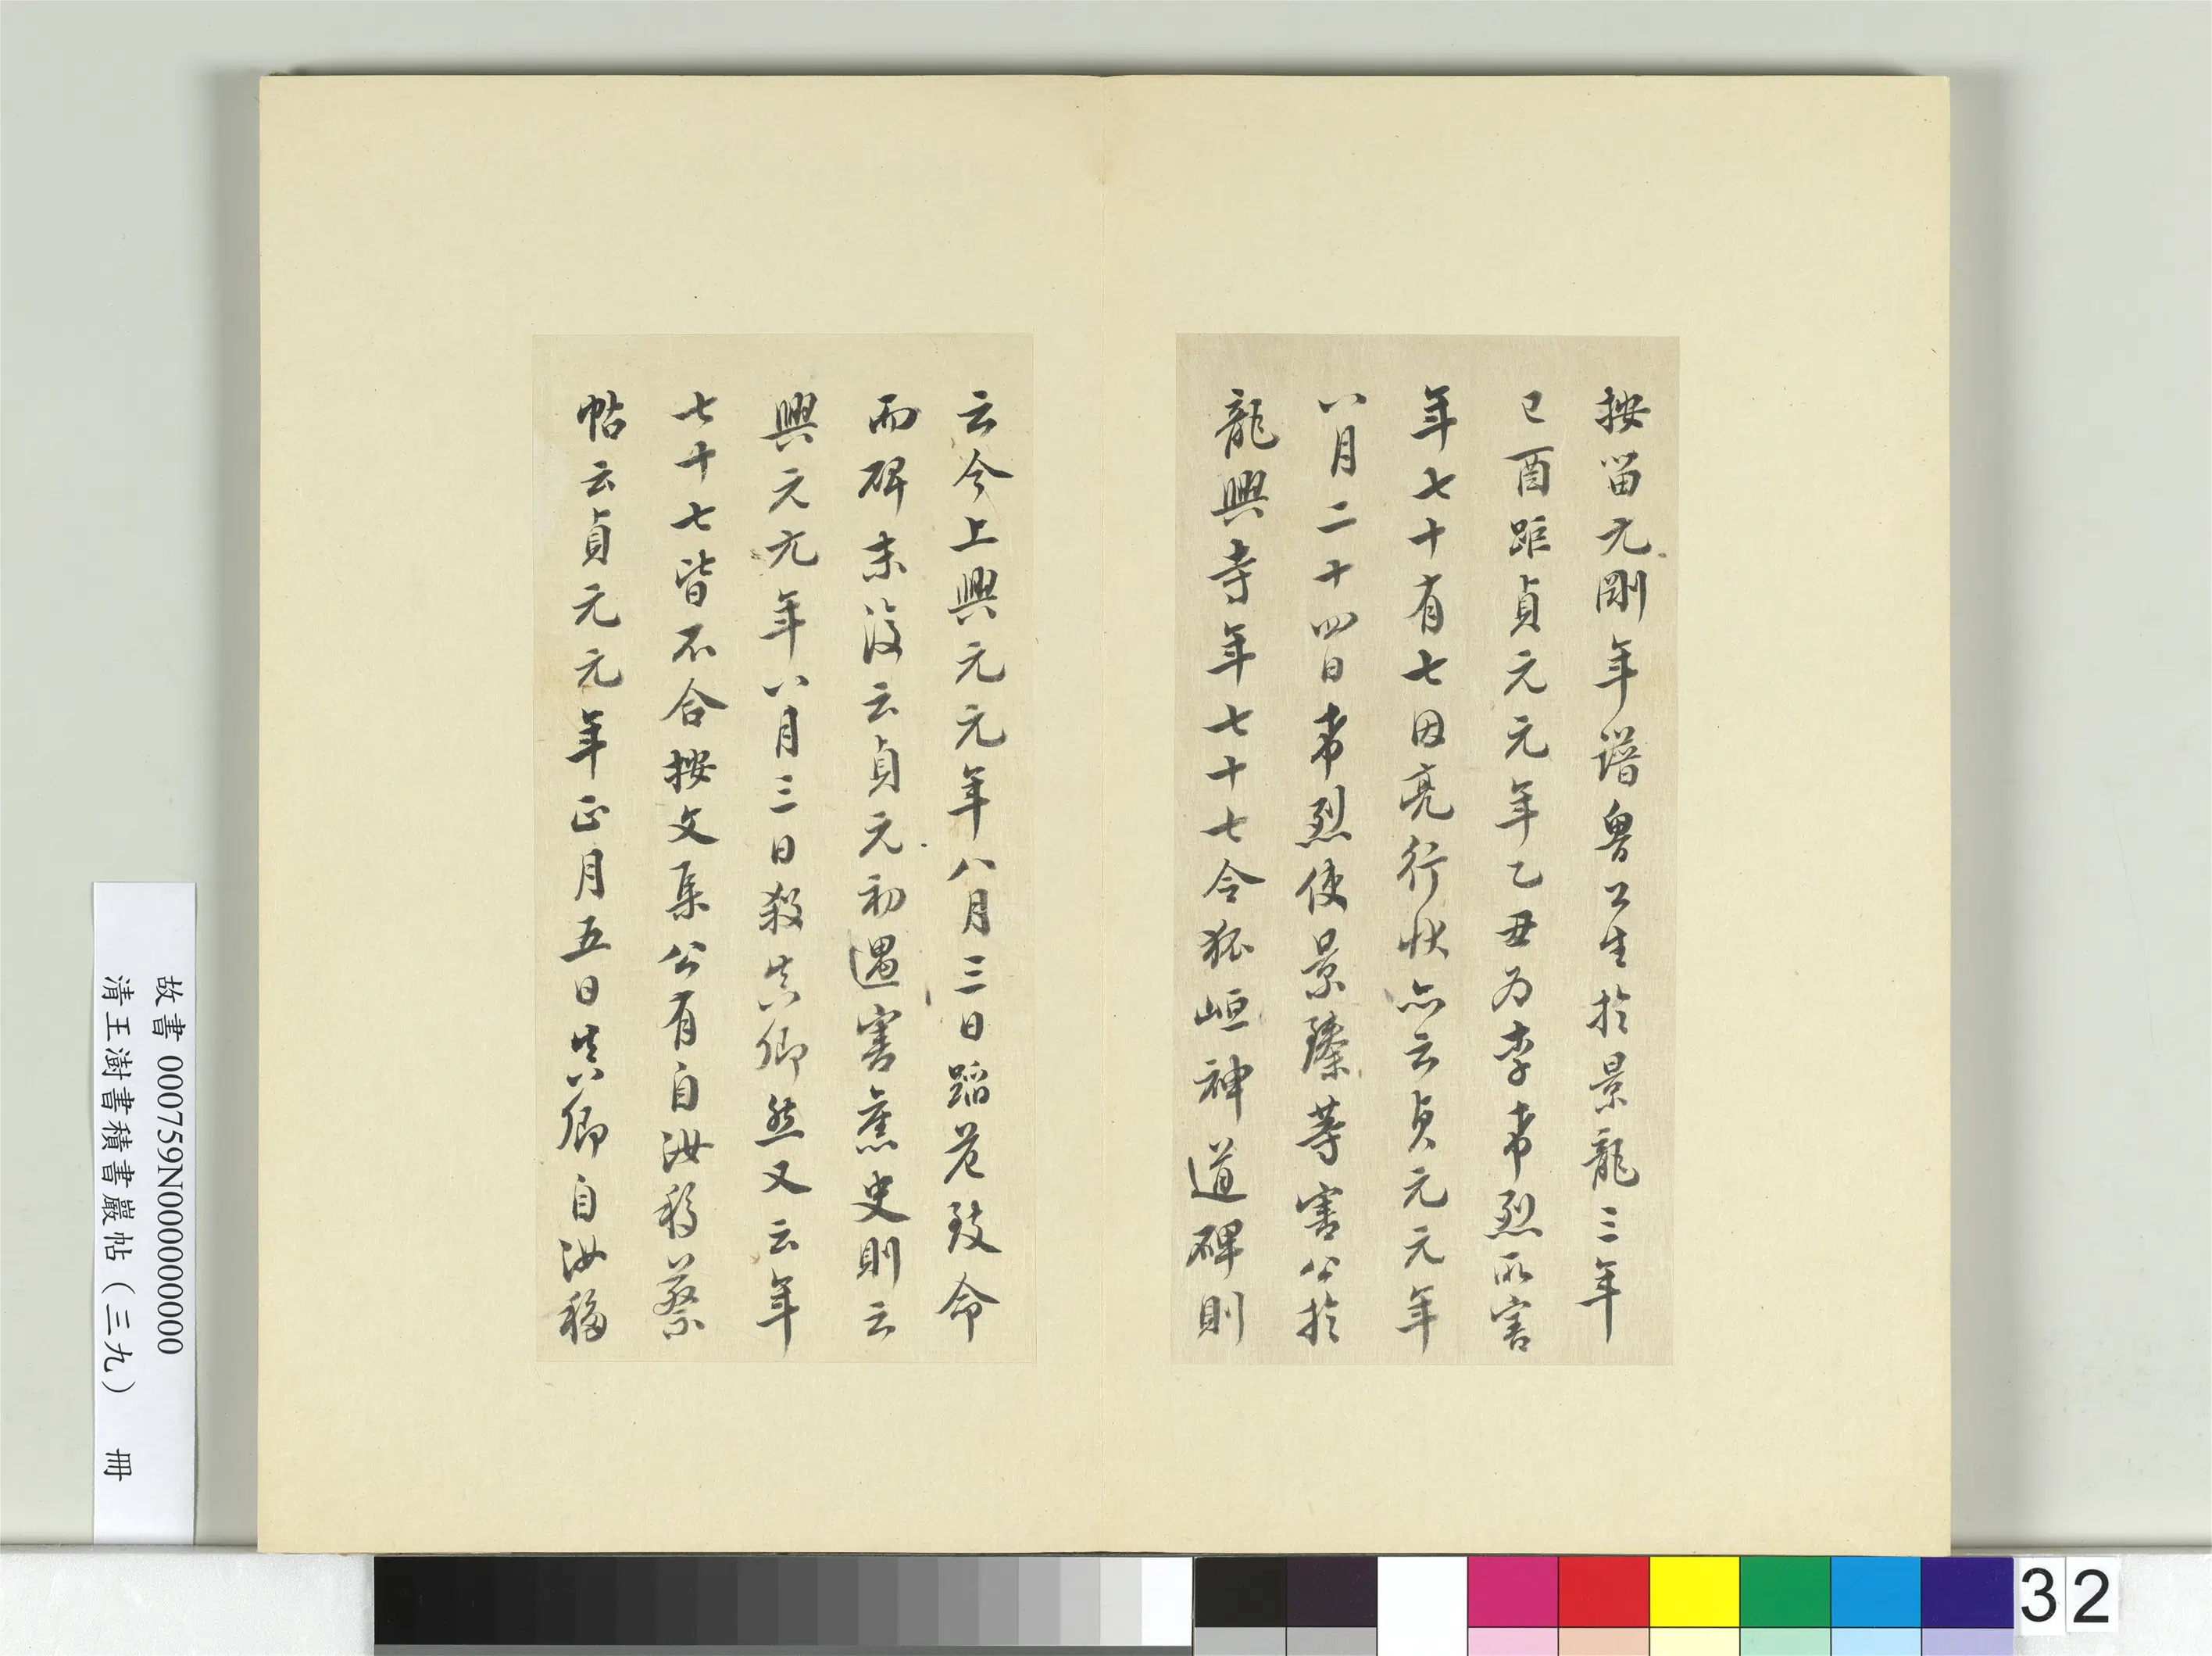 按留元剛年譜魯公生於景龍三年
己酉距貞元元年乙丑為李希烈所害
年七十有七因亮行狀亦云貞元元年
八月二十四日希烈使景臻等害公於
龍興寺年七十七令狐峘神道碑則
云今上興元元年八月三日蹈危致命
而碑末復云貞元初遇害舊史則云
興元元年八月三日殺真卿然又云年
七十七皆不合按文集公有自汝移蔡
帖云貞元元年正月五日真卿自汝移
故書 000759N000000000
清王澍書積書巖帖（三九） 冊
32